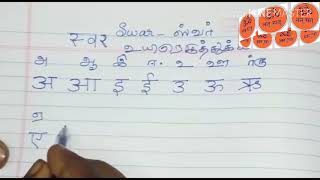 स्वर Swar - ஸ்வர்
உயிரெழுத்துக்கள்
அ ஆ இ ஈ உ ஊ ரு
अ आ इ ई उ ऊ ऋ
எ
ए